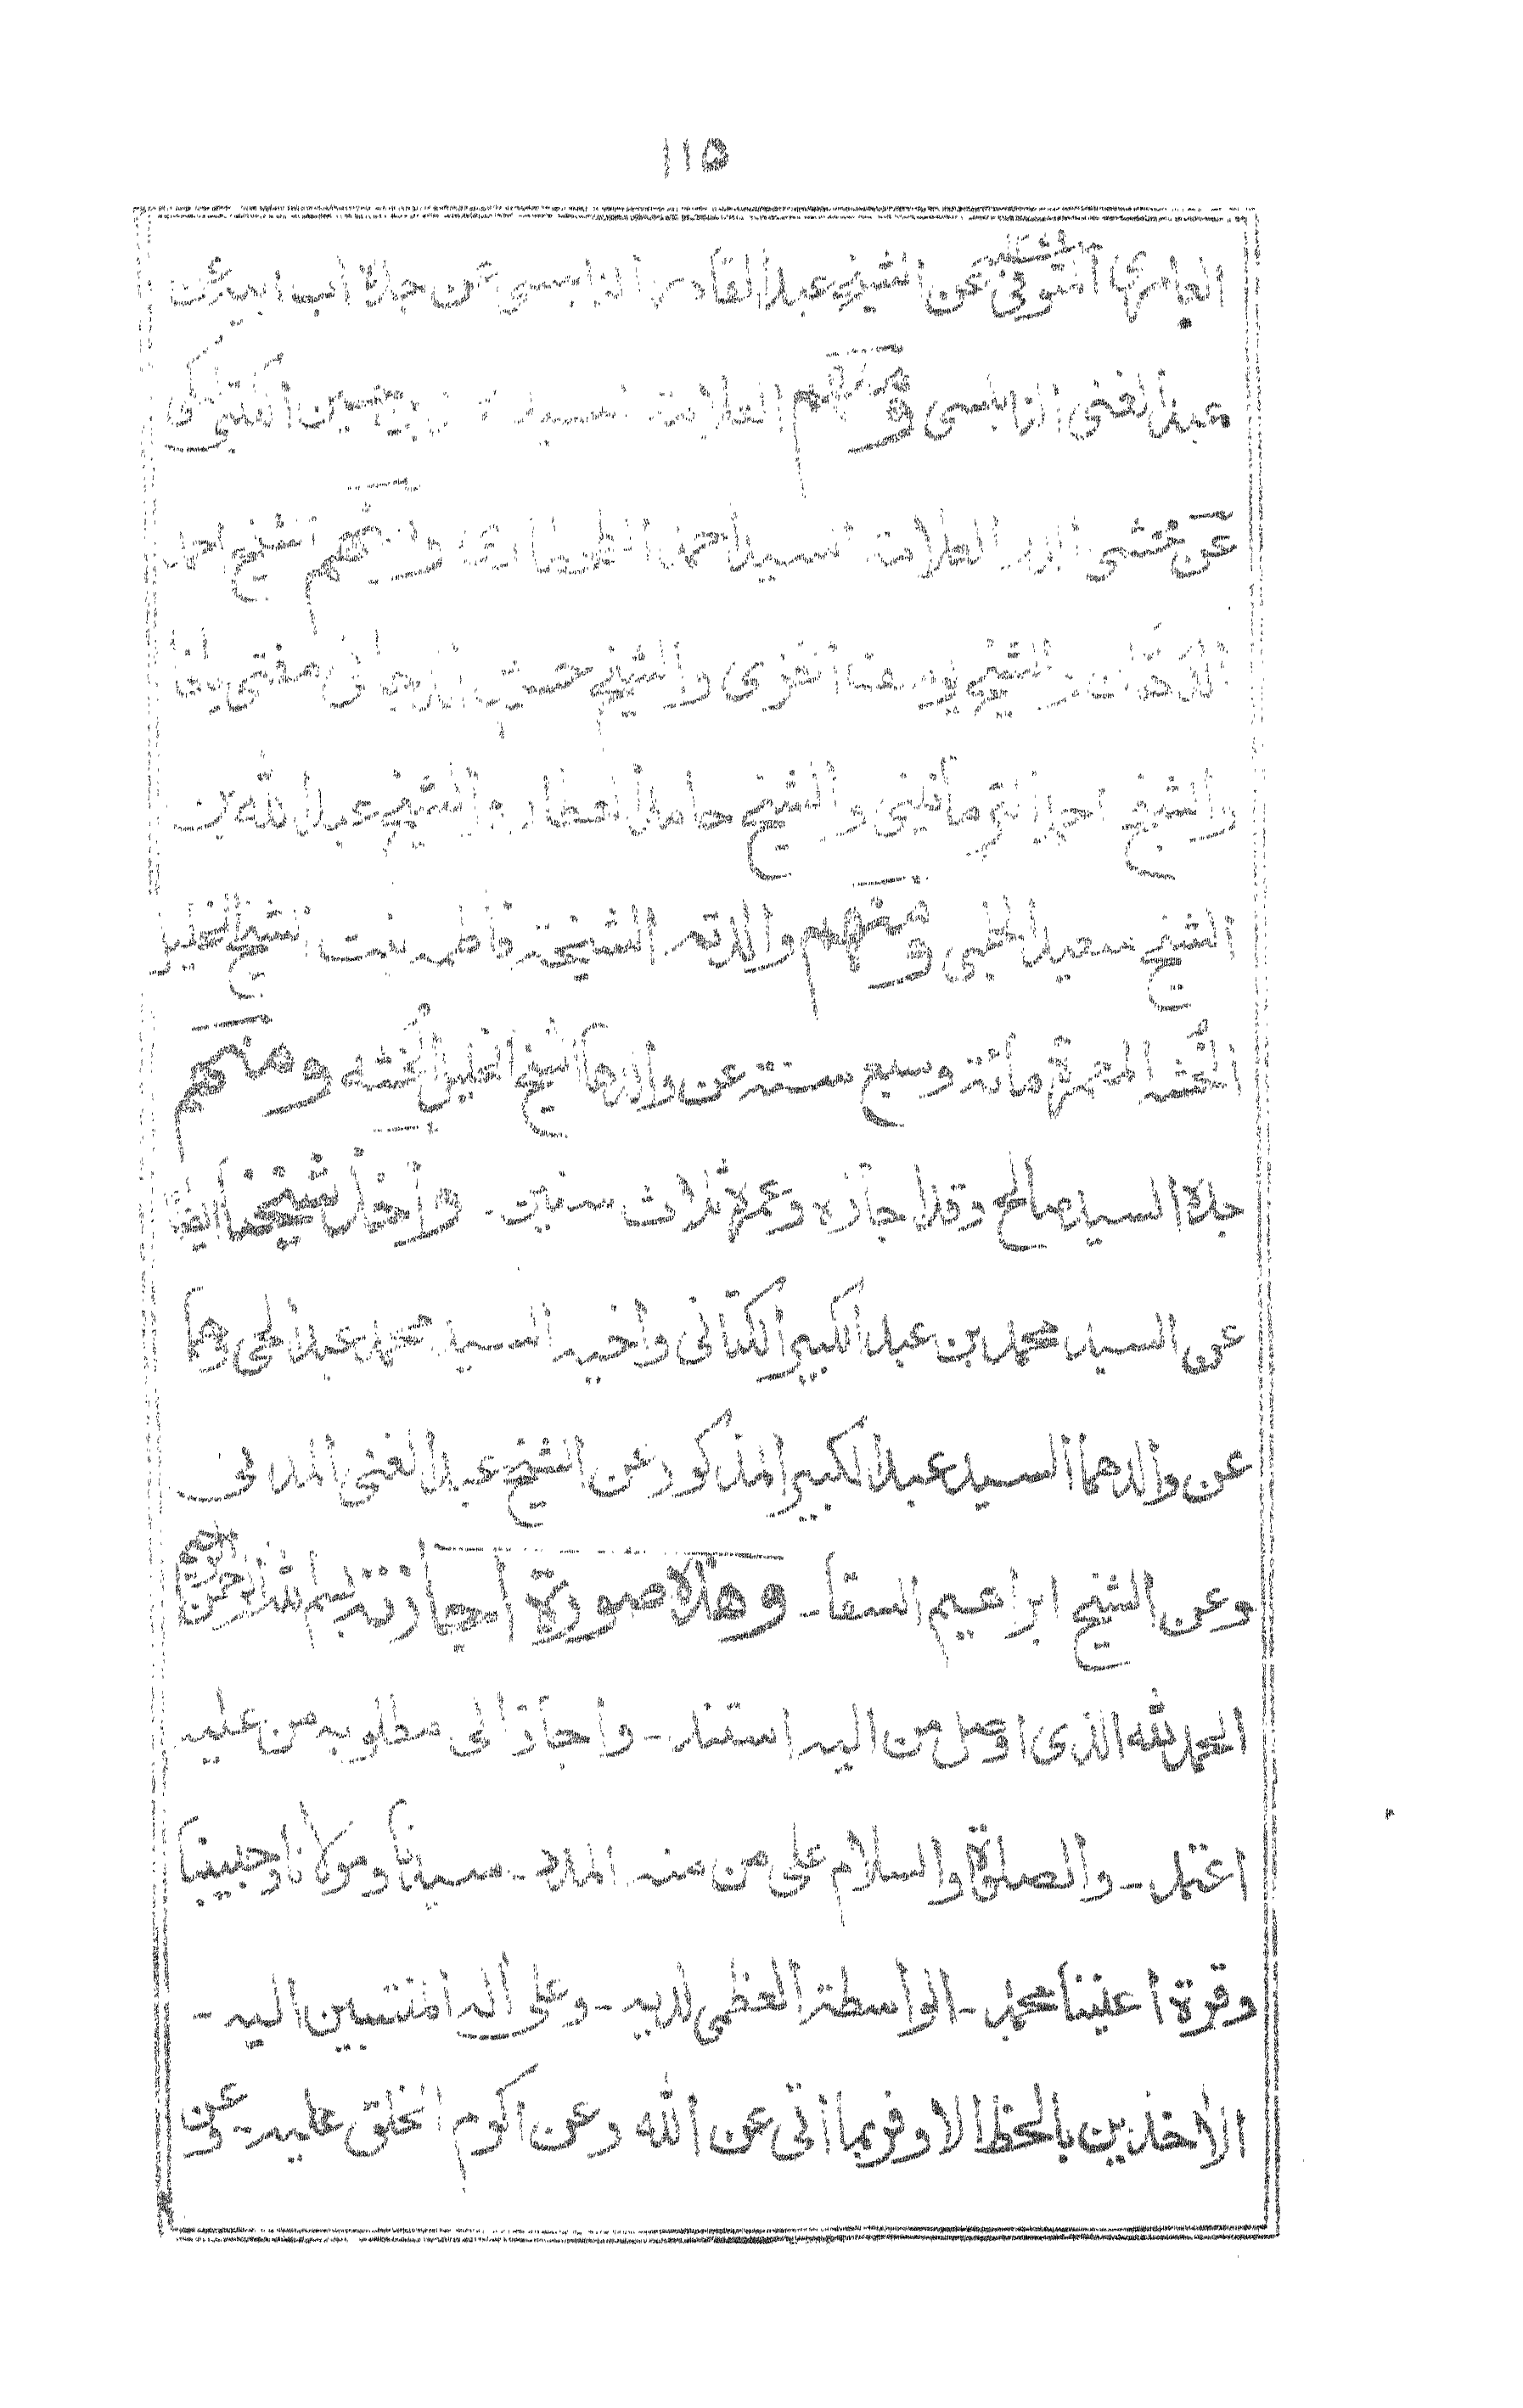 ١١٥
العامرى المتوفى عن الشيخ عبد القادر النابلسى عن جده اب ابيه
عبد الغنى النابلسى ومنهم العلامة السيد حسين الكتبى
عن محشى الدر العلامة السيد احمد الطحطاوى ومنهم الشيخ احمد
والشيخ يوسف الغزى والشيخ حسين الدجانى مفتى يافا
والشيخ احمد الترمانينى والشيخ حامد العطار والشيخ عبد الله بن
الشيخ سعيد الحلبى ومنهم والدته الشيخة فاطمه بنت الشيخ الخليل
الخُشه المعمرة مائة وسبع سنة عن والدها الشيخ الخليل الخُشه ومنهم
جده السيد صالح وقد اجازه وعمره ثلاث سنين - واخذ شيخنا ايضًا
عن السيد محمد بن عبد الكبير الكتانى واخيه السيد محمد عبد الحى وهما
عن والدهما السيد عبد الكبير المذكور عن الشيخ عبد الغنى المدنى
وعن الشيخ ابراهيم السقا - وهذه صورة اجازته بسم الله الرحمن الرحيم
الحمد لله الذى اوصل من اليه استند - واجاز الى مطلوبه من عليه
اعتمد - والصلوة والسلام على من منه المدد - سيدنا ومولانا وحبيبنا
وقرة اعيننا محمد - الواسطة العظمى لديه - وعلى اله المنتسبين اليه -
الاخذين بالحظ الاوفر بما اتى عن الله وعن اكرم الخلق عليه - وعن